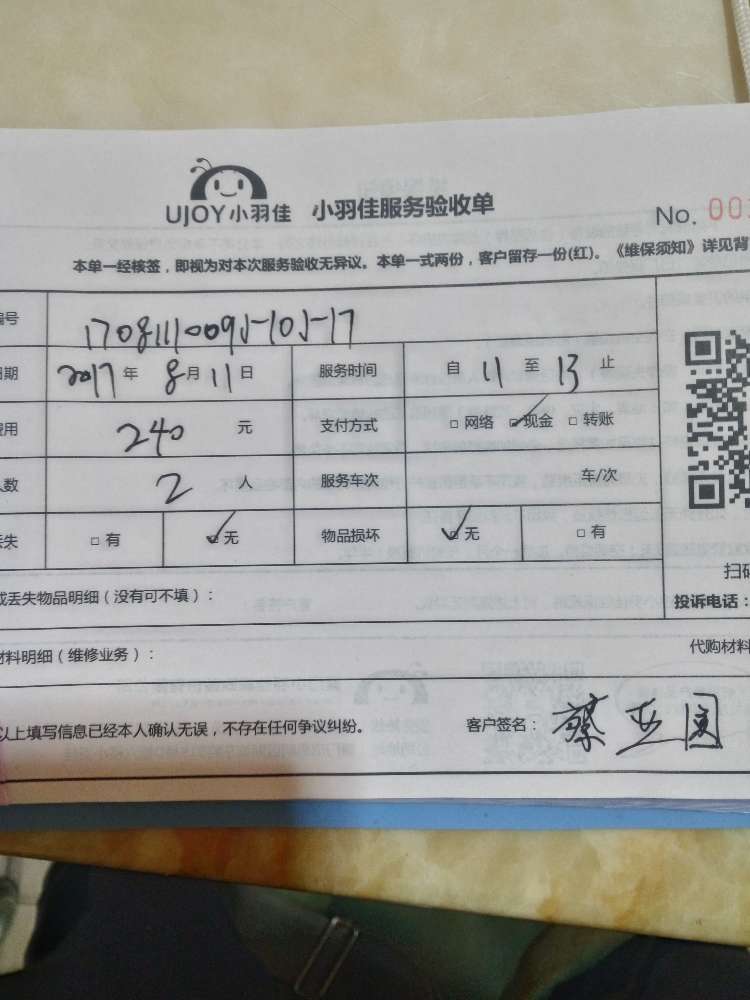 UJOY小羽佳 小羽佳服务验收单
No. 00
本单一经核签，即视为对本次服务验收无异议。本单一式两份，客户留存一份(红)。《维保须知》详见背
编号 170811009J-10J-17
日期 2017年8月11日 服务时间 自11至13止
费用 240元 支付方式 □网络 ☑现金 □转账
人数 2人 服务车次 车/次
丢失 □有 ☑无 物品损坏 ☑无 □有
扫码
或丢失物品明细（没有可不填）：
投诉电话：
材料明细（维修业务）：
代购材料
以上填写信息已经本人确认无误，不存在任何争议纠纷。 客户签名：蔡亚